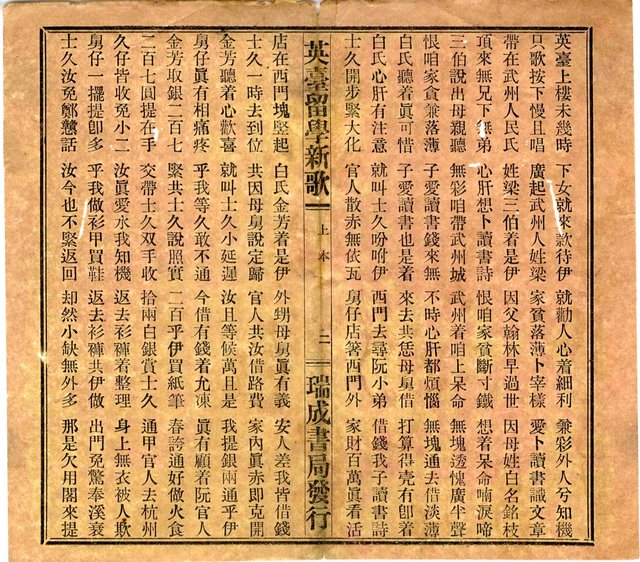 英臺上樓未幾時 下女就來款待伊 就勸人心着細利 兼彩外人兮知機
只歌按下慢且唱 廣起武州人姓梁 家貧落薄卜宰樣 愛卜讀書識文章
帶在武州人民氏 姓梁三伯着是伊 因父翰林早過世 因母姓白名銘枝
頂來無兄下無弟 心肝想卜讀書詩 恨咱家貧斷寸鐵 想着呆命喃淚啼
三伯說出母親聽 無彩咱帶武州城 武州着咱上呆命 無塊透愧廣半聲
恨咱家食兼落薄 子愛讀書錢來無 不時心肝都煩惱 無塊通去借淡薄
白氏聽着眞可惜 子愛讀書也是着 來去共恁母舅借 打算得壳有卽着
白氏心肝有注意 就叫士久吩咐伊 西門去尋阮小弟 借錢我子讀書詩
士久開步緊大化 官人散赤無依瓦 舅仔店箸西門外 家財百萬眞看活
英臺留學新歌 上本 二 瑞成書局發行
店在西門塊竪起 白氏金芳着是伊 外甥母舅眞有義 安人差我皆借錢
士久一時去到位 共因母舅說定歸 官人共汝借路費 家內眞赤卽克開
金芳聽着心歡喜 就叫士久小延遲 汝且等候萬且是 我提銀兩通乎伊
舅仔眞有相痛疼 乎我等久敢不通 今借有錢着允凍 眞有顧着阮官人
金芳取銀二百七 緊共士久說照實 二百乎伊買紙筆 春誇通好做火食
二百七圓提在手 交帶士久双手收 拾兩白銀賞士久 通甲官人去杭州
久仔皆收免小二 汝眞愛永我知機 返去衫褲着整理 身上無衣被人欺
舅仔一擺提卽多 乎我做衫甲買鞋 返去衫褲共伊做 出門免驚奉溪衰
士久汝免鄭戇話 汝今也不緊返回 却然小缺無外多 那是欠用閣來提